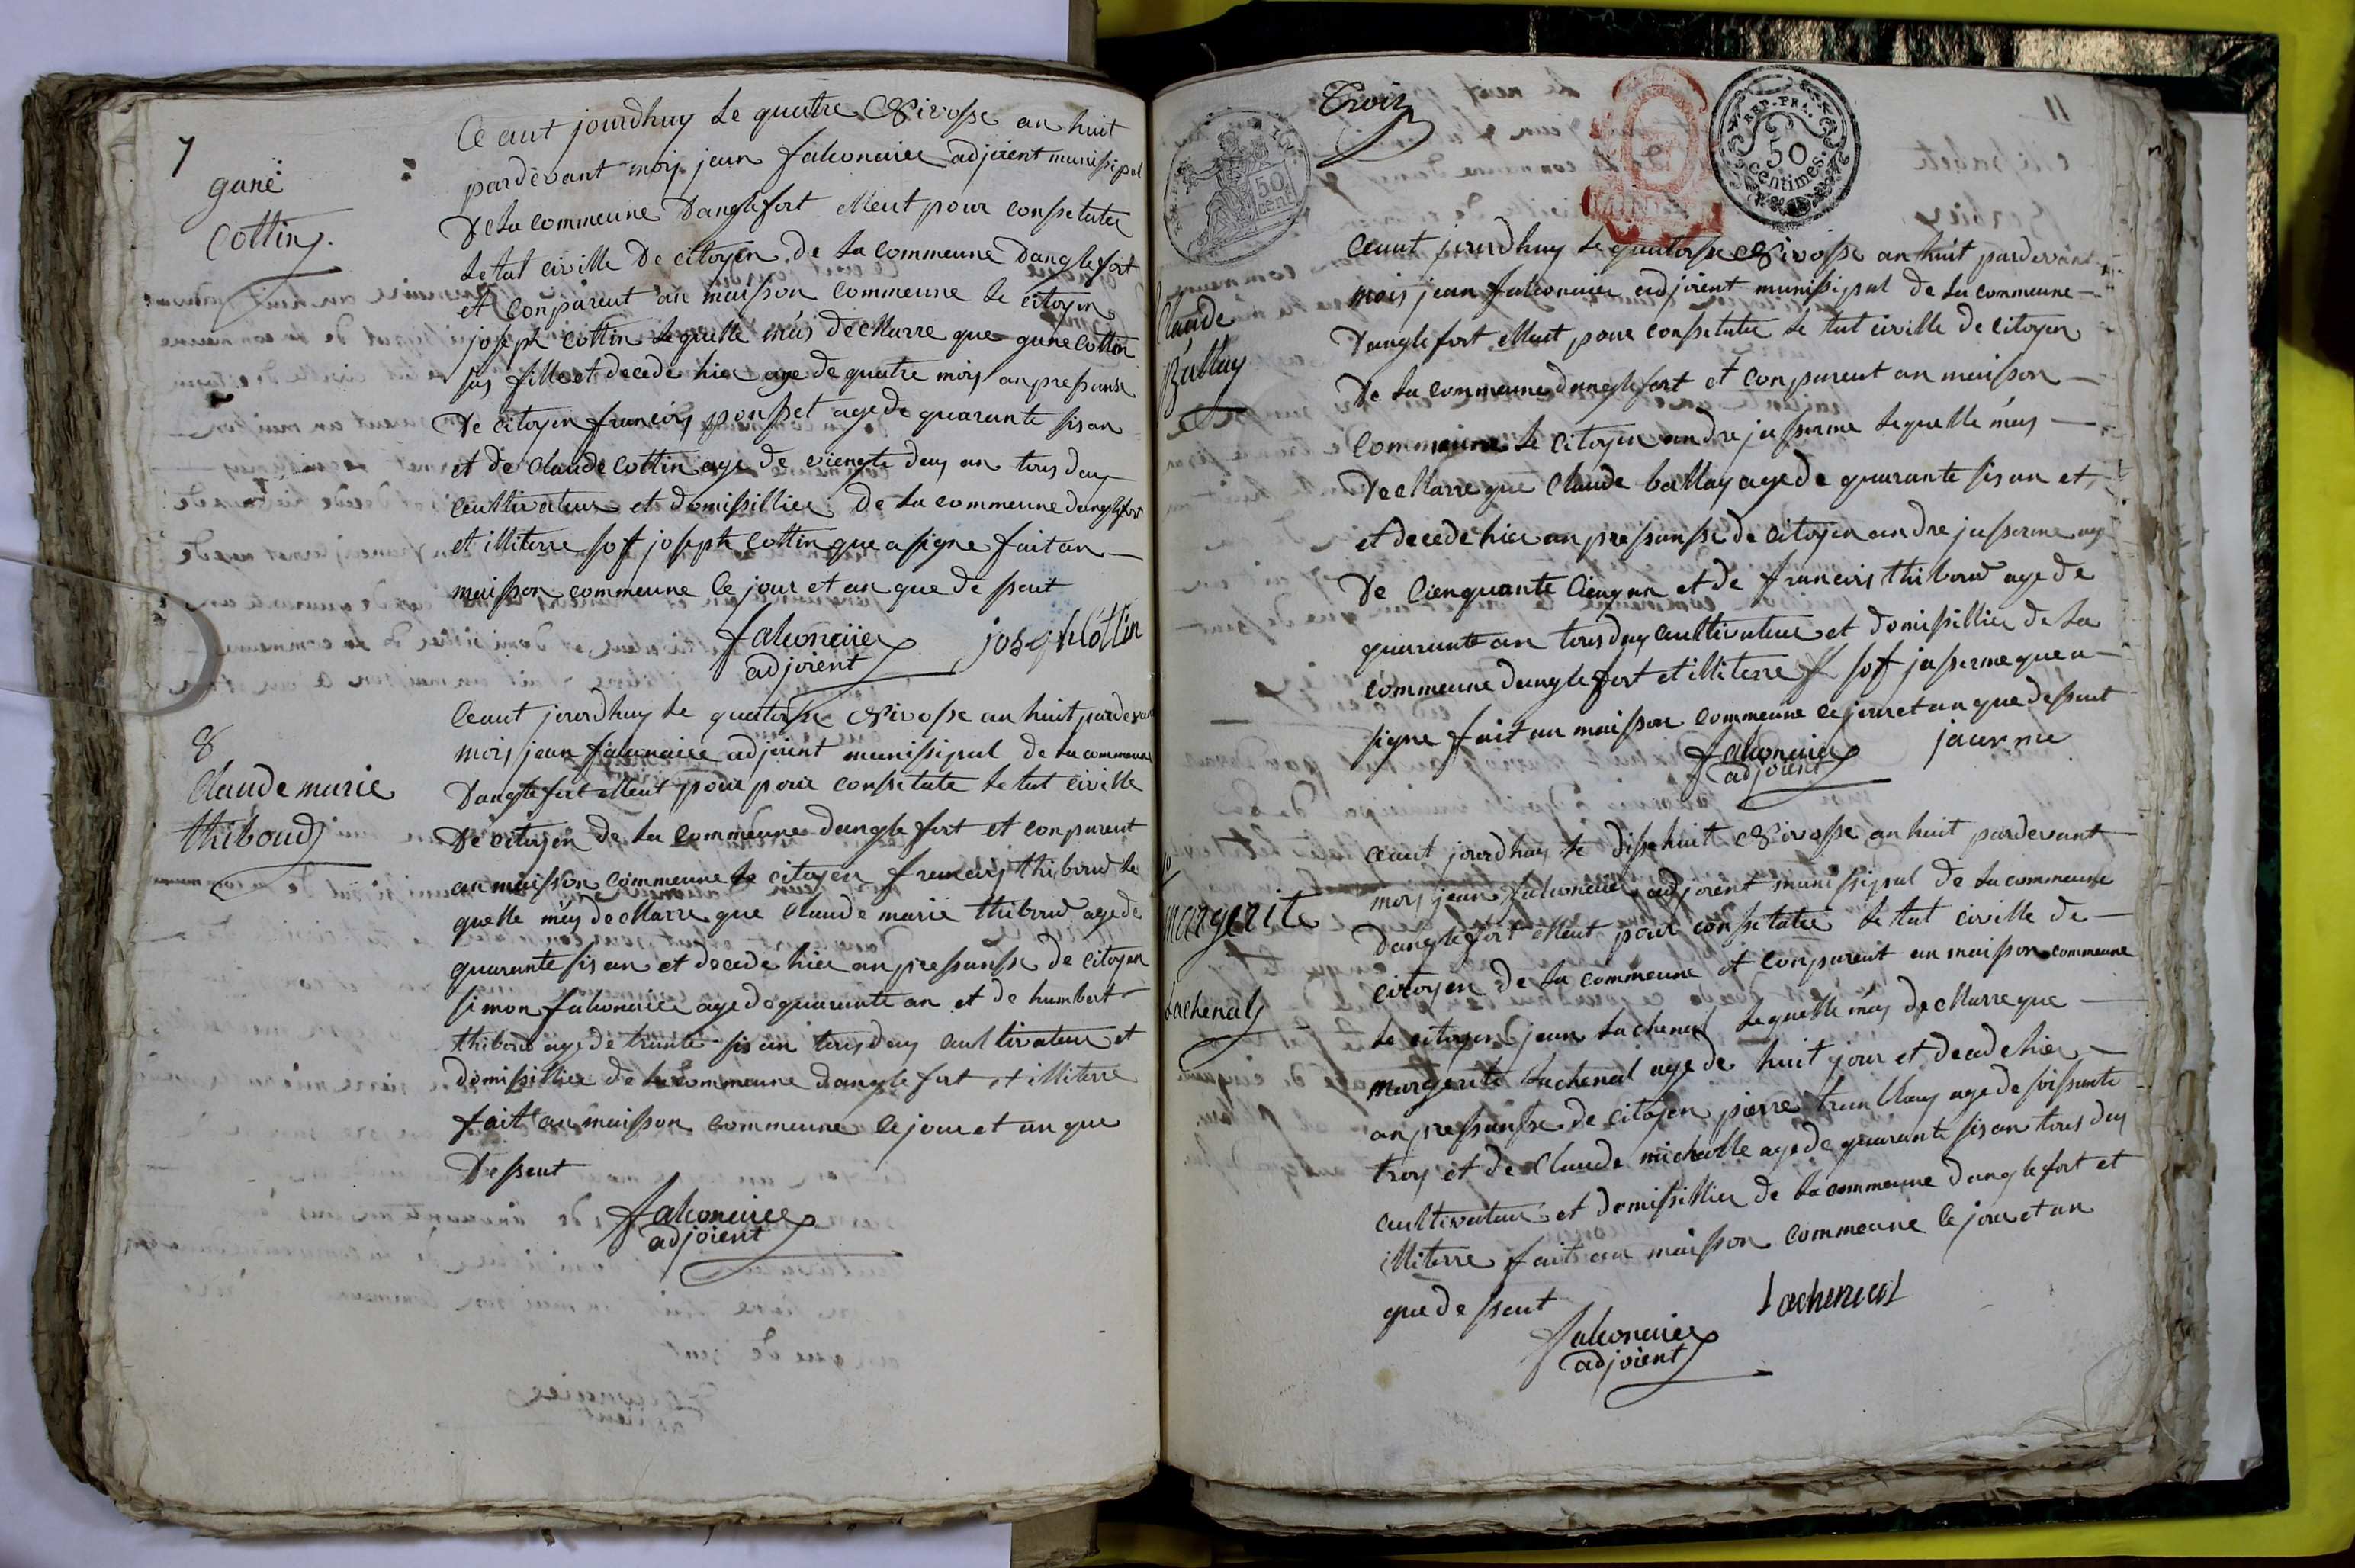 7
gane
Cottin
Ce aut jourdhuy le quatre Nivosse an huit
pardevant moij jean falconnier adjoient munissipal
De la commeune Danglefort elleut pour conssetater
le tat civille De citoyen de la commeune Danglefort
et conparent an maisson commeune le citoyen
joseph Cottin lequelle mas decllarre que gane Cottin
sas fille et decede hier age de quatre mois anpressansse
De citoyen francois ponsset age de quarante sis an
et de Claude Cottin age de viengte deus an tous deus
Cultivateur et domissillier de la commeune danglefort
et illiterre sof joseph Cottin que a signe fait an
maisson commeune le jour et an que de sseut
falconnier
adjoient
joseph Cottin
8
Claude marie
thiboud
Ceaut jourdhuy le quatorsse Nivosse an huit pardevant
mois jean falconnier adjoient munissipal de la commeune
Danglefort elleut pour pour conssetate le tat civille
De citoyen de la commeune danglefort et conparent
an maisson commeune le citoyen francois thiboud le
quelle mas decllarre que Claude marie thiboud age de
quarante sis an et decede hier anpressansse de citoyen
simon falconnier age de quarante an et de humbert
thiboud age de trante sis an tous deus cultivateur et
domissillier de la commeune danglefort et illiterre
fait an maisson commeune le jour et an que
Desseut
falconnier
adjoient
Trois
50
cent
REP. FRA.
50
centimes.
11
Claude
Ballay
Ceaut jourdhuy le quatorsse Nivosse an huit pardevant
mois jean falconnier adjoient munissipal de la commeune
Danglefort elleut pour conssetater le tat civille de citoyen
De la commeune danglefort et conparent an maisson
Commeune le citoyen andre jasserme lequelle mas
Decllarre que Claude ballay age de quarante sis an et
et decede hier anpressansse de citoyen andre jasserme age
De cienquante cienq an et de francois thiboud age de
quarante an tous deus cultivateur et domissillier de la
commeune danglefort et illiterre sof jasserme que a
signe fait an maisson commeune le jour et an que desseut
falconnier
adjoient
margerite
Lachenal
Ceaut jourdhuy le disse huit Nivosse an huit pardevant
mois jean falconnier adjoient munissipal de la commeune
Danglefort elleut pour conssetater le tat civille de
citoyen de la commeune et conparent an maisson commeune
le citoyen jean Lachenal lequelle mas decllarre que
margerite Lachenal age de huit jour et decede hier
anpressansse de citoyen pierre age de soissante
troys et de Claude michaille age de quarante sis an tous deus
cultivateur et domissillier de la commeune danglefort et
illiterre fait an maisson commeune le jour et an
que de sseut
Lachenal
falconnier
adjoient